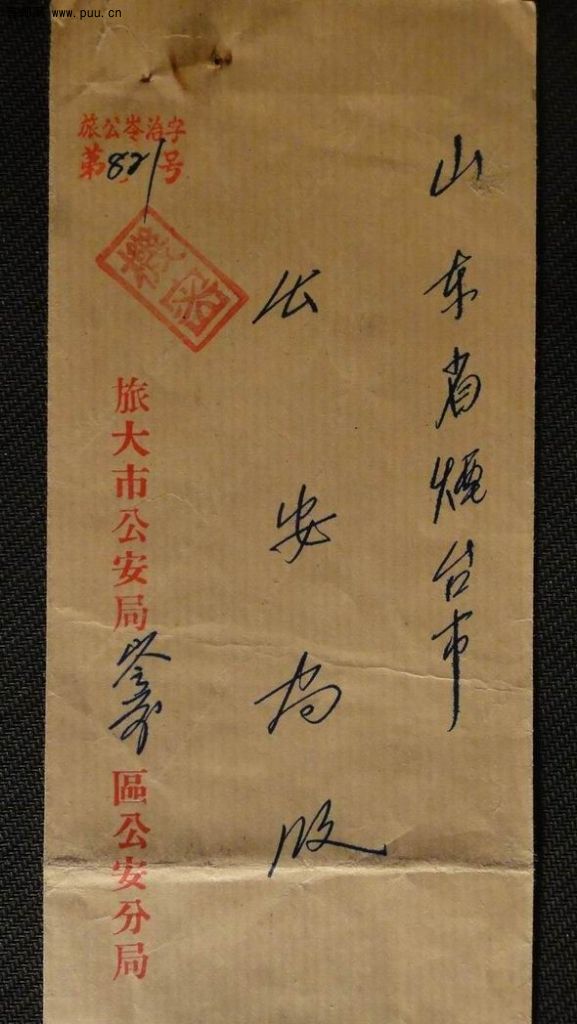 www.puu.cn
山东省烟台市
公安局收
旅公岺治字
第821号
機密
旅大市公安局岺前區公安分局